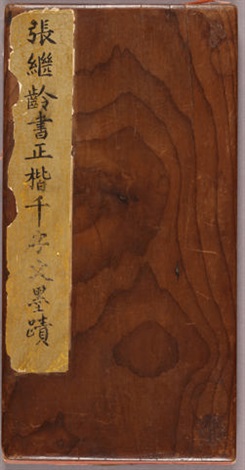 張繼齡書正楷千字文墨蹟